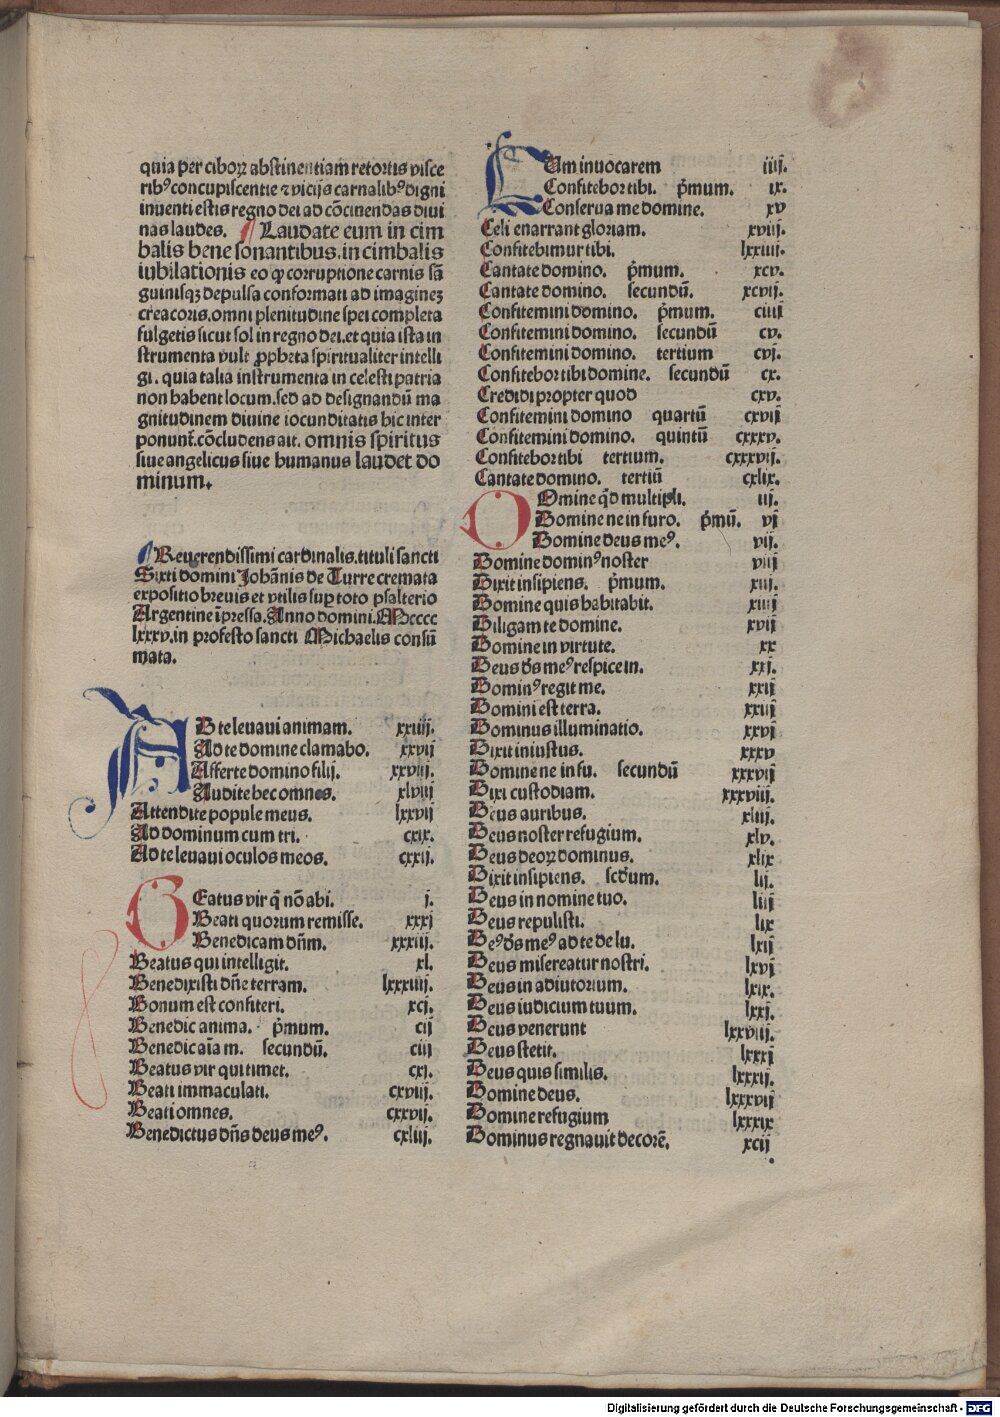 quia per ciboꝝ abstinentiam retortis visce
ribꝰ concupiscentie ⁊ vicijs carnalibꝰ digni
inuenti estis regno dei ad cōcinendas diui
nas laudes. ¶ Laudate eum in cim
balis bene sonantibus. in cimbalis
iubilationis eo ꝙ corruptione carnis sā
guinisqꝫ depulsa conformati ad imagineꝫ
creacoris. omni plenitudine spei completa
fulgetis sicut sol in regno dei. et quia ista in
strumenta vult ꝓpheta spiritualiter intelli
gi. quia talia instrumenta in celesti patria
non habent locum. sed ad designandū ma
gnitudinem diuine iocunditatis hic inter
ponunt᷑. cōcludens ait. omnis spiritus
siue angelicus siue humanus laudet do
minum.
¶ Reuerendissimi cardinalis. tituli sancti
Sixti domini Johānis de Turre cremata
expositio breuis et vtilis suꝑ toto psalterio
Argentine īpressa. Anno domini. Mcccc
lxxxv. in profesto sancti Michaelis consū
mata.
AD te leuaui animam. xxiiij.
Ad te domine clamabo. xxvij
Afferte domino filij. xxviij.
Audite hec omnes. xlviij
Attendite popule meus. lxxvij
Ad dominum cum tri. cxix.
Ad te leuaui oculos meos. cxxij.
BEatus vir q̄ nō abi. j.
Beati quorum remisse. xxxj
Benedicam dn̄m. xxxiij.
Beatus qui intelligit. xl.
Benedixisti dn̄e terram. lxxxiiij.
Bonum est confiteri. xcj.
Benedic anima. p̄mum. cij
Benedic aīa m. secundū. ciij
Beatus vir qui timet. cxj.
Beati immaculati. cxviij.
Beati omnes. cxxvij.
Benedictus dn̄s deus meꝰ. cxliij.
CUm inuocarem iiij.
Confitebor tibi. p̄mum. ix.
Conserua me domine. xv
Celi enarrant gloriam. xviij.
Confitebimur tibi. lxxiiij.
Cantate domino. p̄mum. xcv.
Cantate domino. secundū. xcvij.
Confitemini domino. p̄mum. ciiij
Confitemini domino. secundū cv.
Confitemini domino. tertium cvj.
Confitebor tibi domine. secundū cx.
Credidi propter quod cxv.
Confitemini domino quartū cxvij
Confitemini domino. quintū cxxxv.
Confitebor tibi tertium. cxxxvij.
Cantate domino. tertiū cxlix.
DOmine qd̄ multipli. iij.
Domine ne in furo. p̄mū. vj
Domine deus meꝰ. vij.
Domine dominꝰ noster viij
Dixit insipiens. p̄mum. xiij.
Domine quis habitabit. xiiij
Diligam te domine. xvij
Domine in virtute. xx
Deus ds̄ meꝰ respice in. xxj.
Dominꝰ regit me. xxij
Domini est terra. xxiij
Dominus illuminatio. xxvj
Dixit iniustus. xxxv
Domine ne in fu. secundū xxxvij
Dixi custodiam. xxxviij.
Deus auribus. xliij.
Deus noster refugium. xlv.
Deus deoꝝ dominus. xlix
Dixit insipiens. scd̄um. lij.
Deus in nomine tuo. liij
Deus repulisti. lix
Deꝰ ds̄ meꝰ ad te de lu. lxij
Deus misereatur nostri. lxvj
Deus in adiutorium. lxix.
Deus iudicium tuum. lxxj.
Deus venerunt lxxviij.
Deus stetit. lxxxj
Deus quis similis. lxxxij.
Domine deus. lxxxvij
Domine refugium lxxxix
Dominus regnauit decorē. xcij
Digitalisierung gefördert durch die Deutsche Forschungsgemeinschaft - DFG